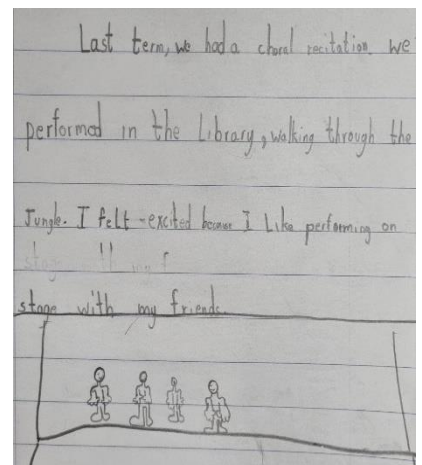 Last term, we had a choral recitation. we
performed in the Library, walking through the
Jungle. I felt excited because I Like performing on
stage with my friends.